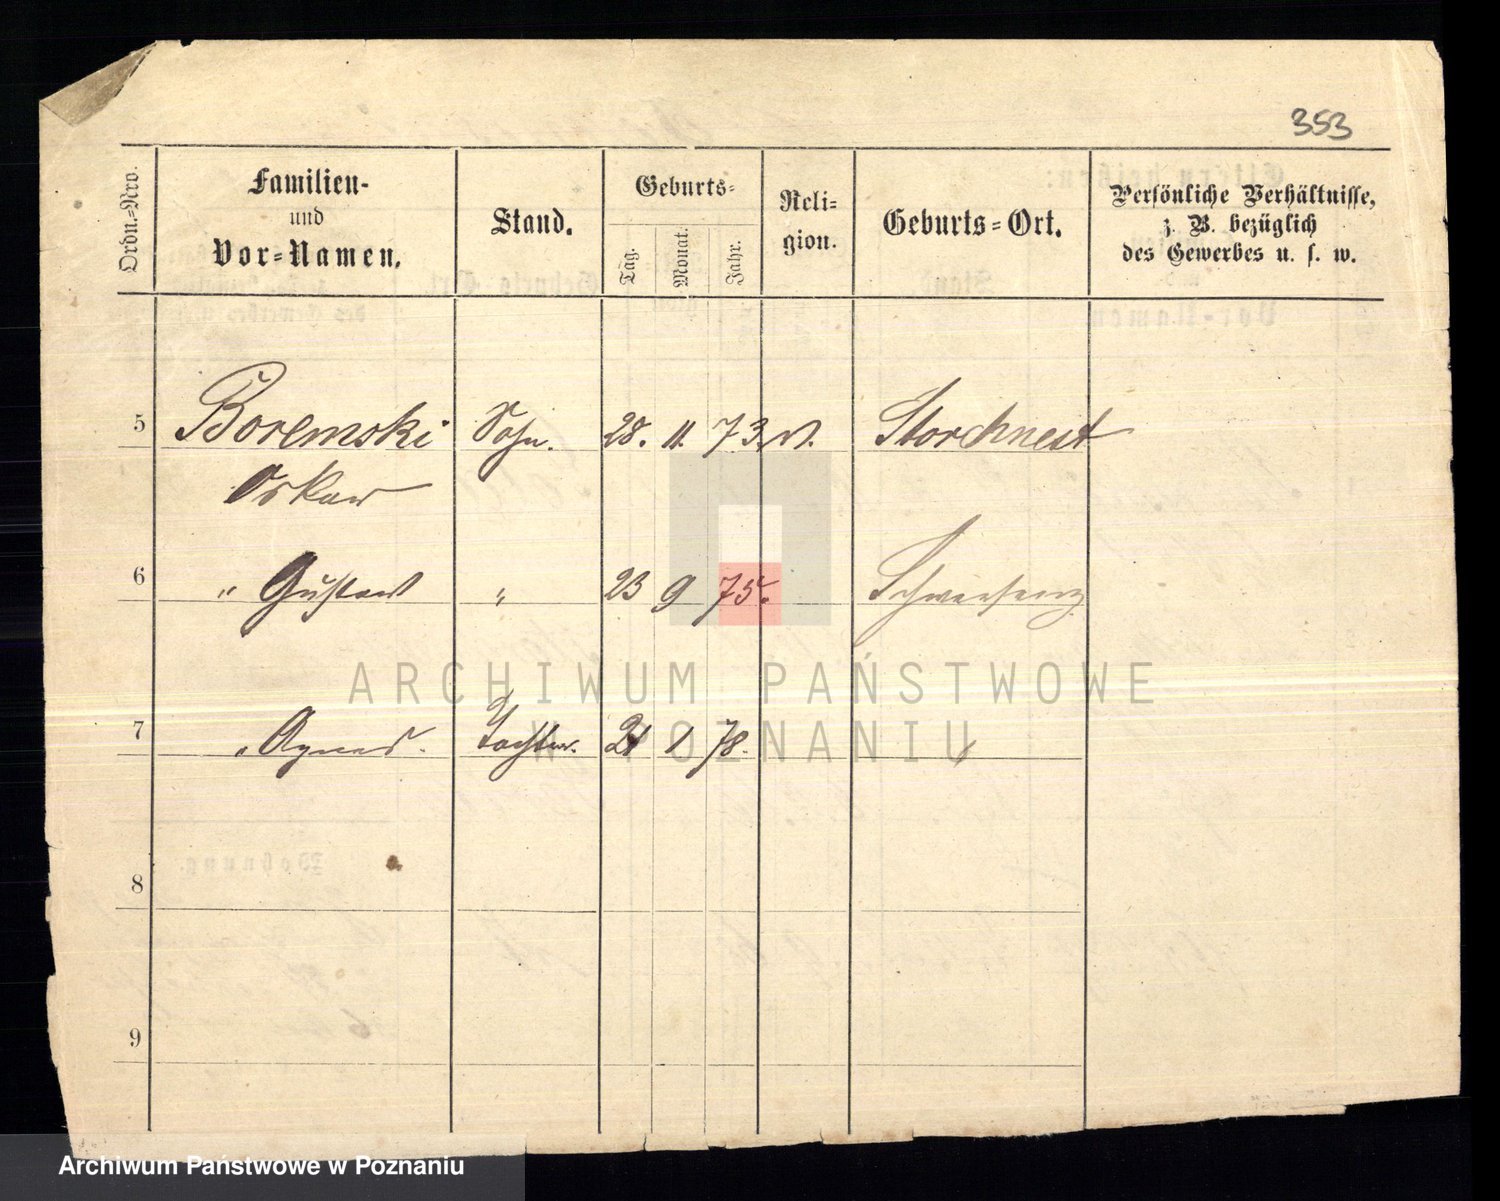 353
Ordn.-Nro.
Familien-
und
Vor-Namen.
Stand.
Geburts-
Tag.
Monat.
Jahr.
Reli-
gion.
Geburts-Ort.
Persönliche Verhältnisse,
z. B. bezüglich
des Gewerbes u. s. w.
5 Boremski Sohn. 28. 11. 73. Storchnest
Oskar
6 " Gustav " 23 9 75. Schwersenz
7 " Agnes. Tochter. 1 78. "
8
9
ARCHIWUM PAŃSTWOWE
W POZNANIU
Archiwum Państwowe w Poznaniu